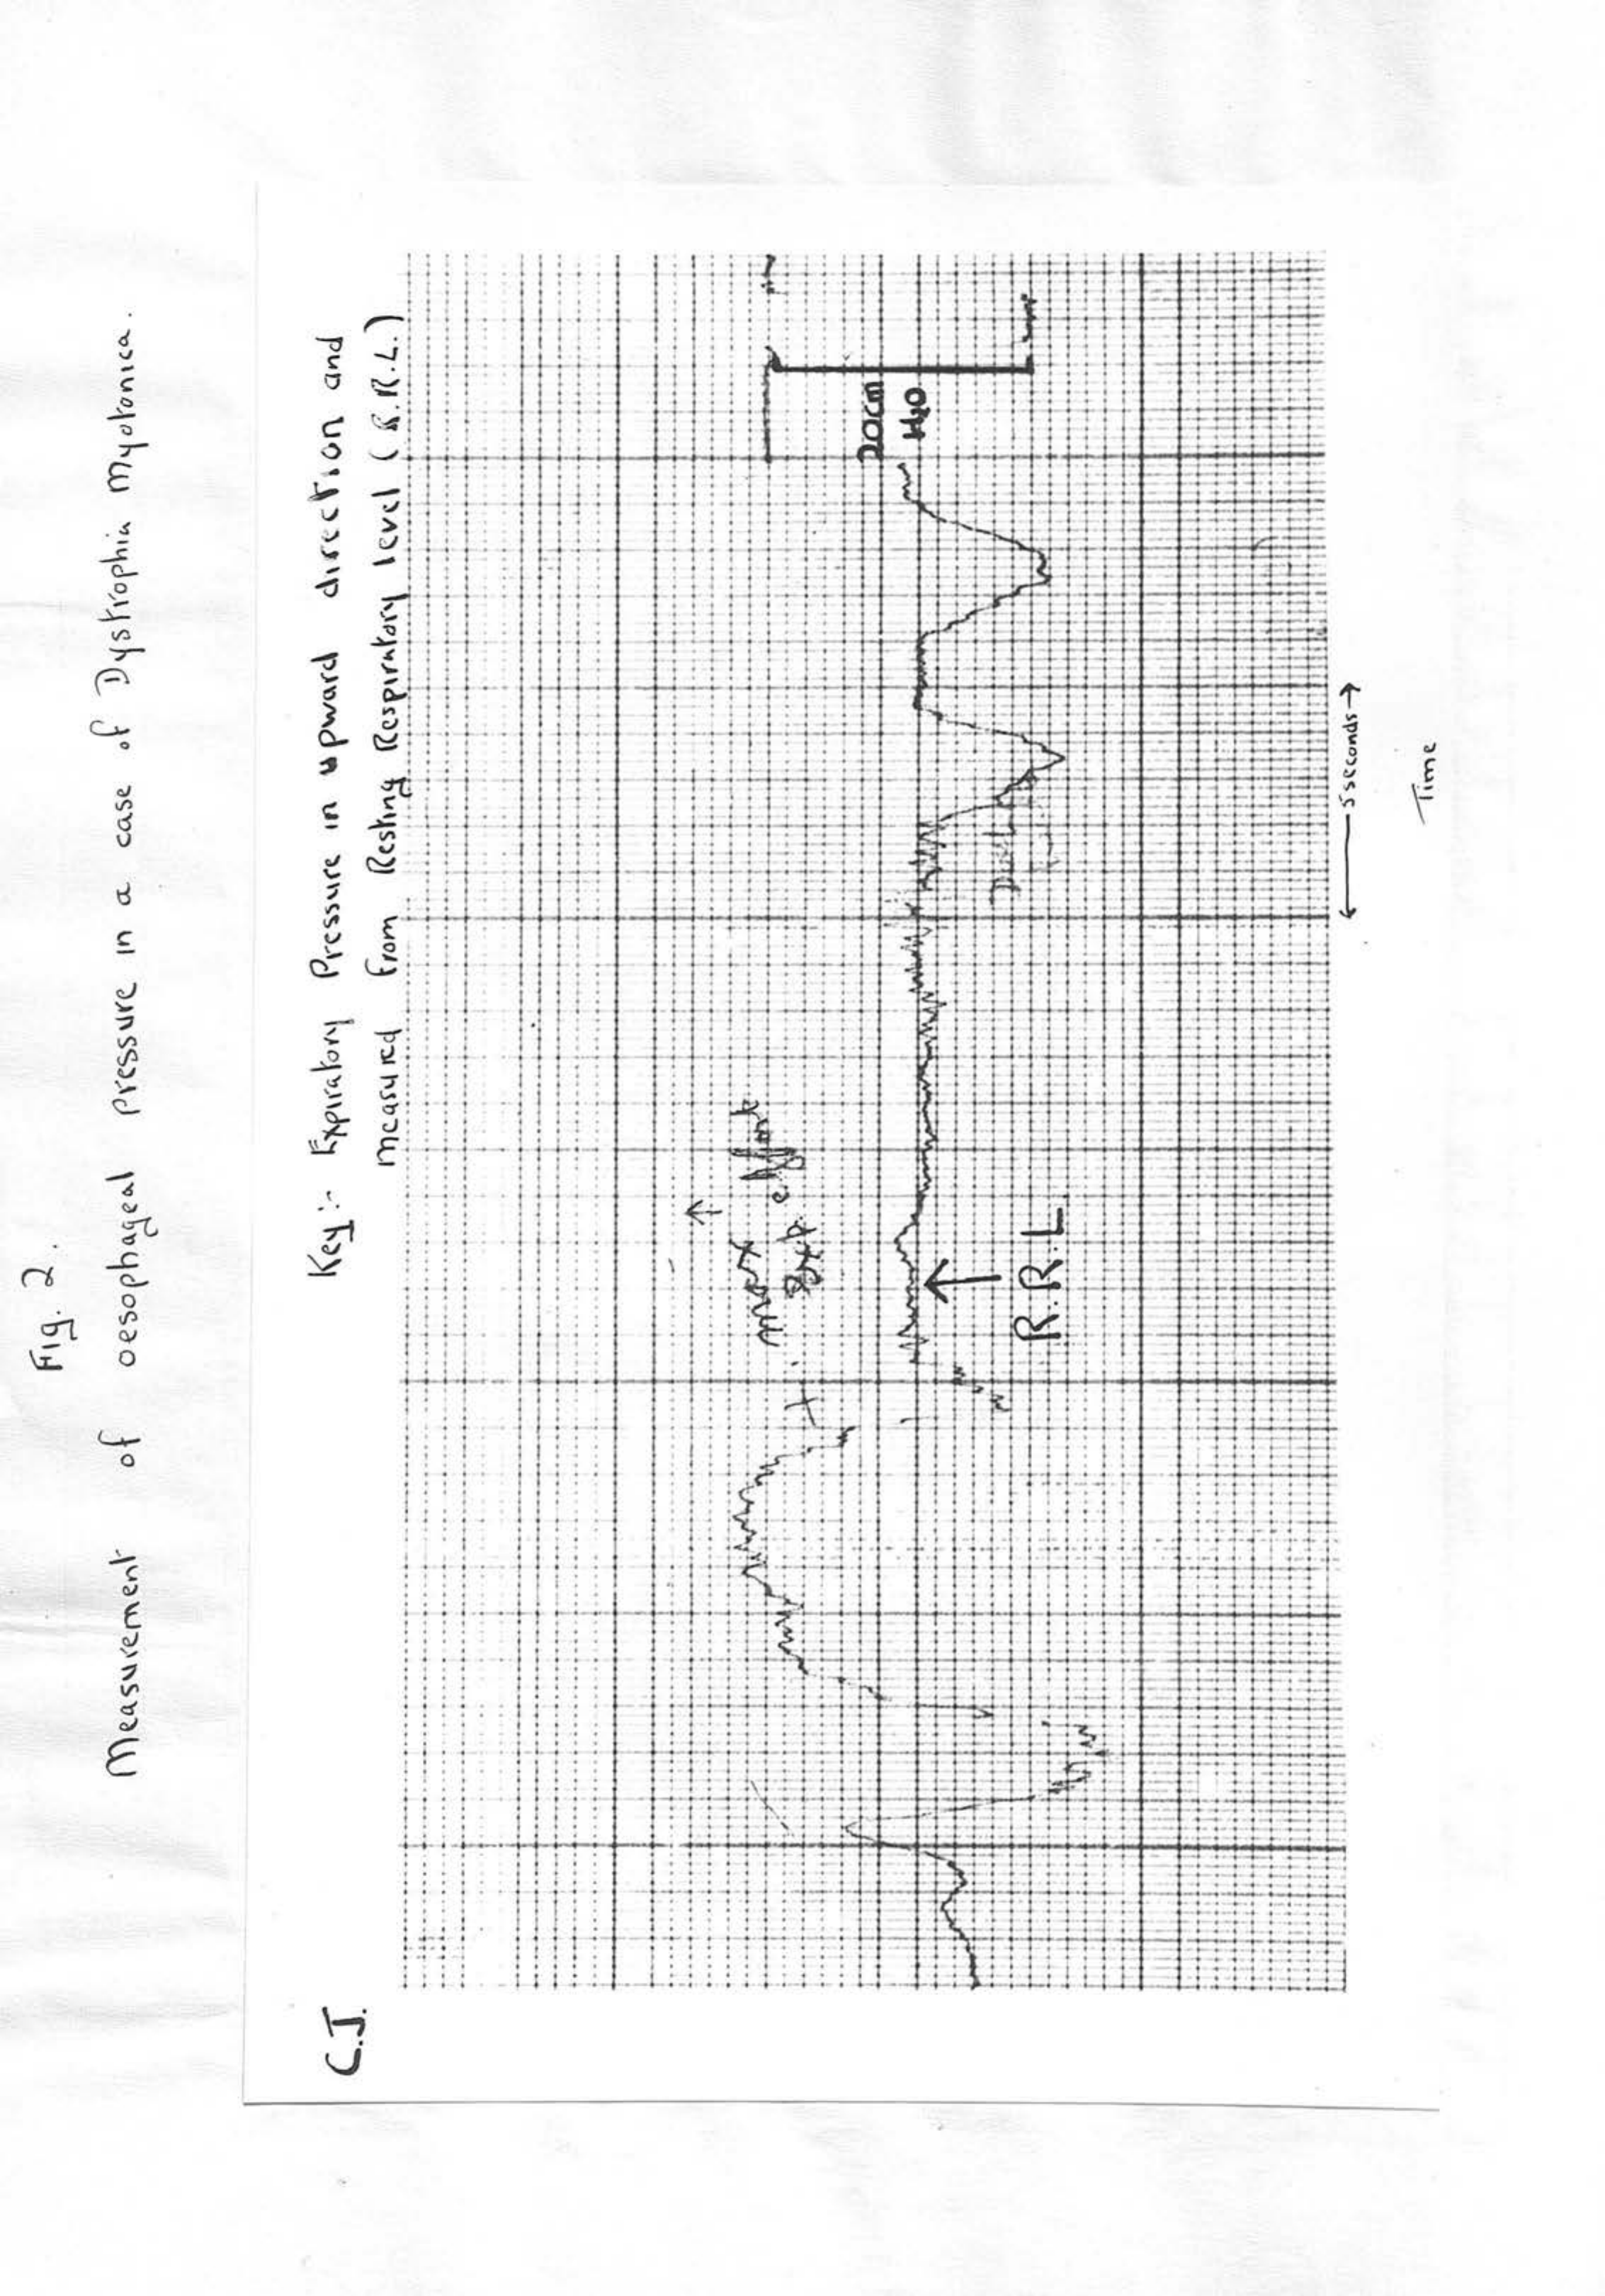 Fig. 2.
Measurement of oesophageal pressure in a case of Dystrophia Myotonica.
Key:- Expiratory Pressure in upward direction and
measured from Resting Respiratory level (R.R.L.)
C.J.
max exp. effort
20cm
H2O
R.R.L
5 seconds
Time